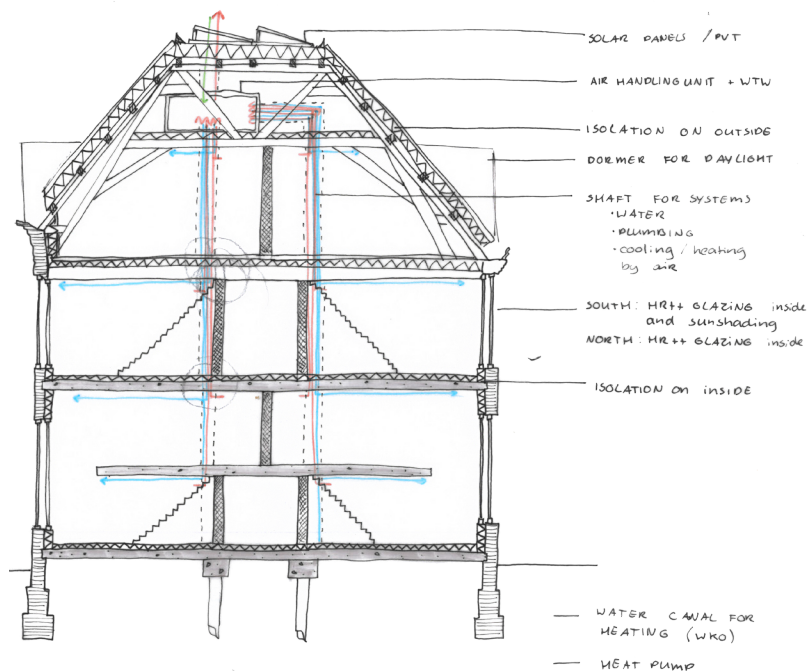 SOLAR PANELS / PVT
AIR HANDLING UNIT + WTW
ISOLATION ON OUTSIDE
DORMER FOR DAYLIGHT
SHAFT FOR SYSTEMS
· WATER
· PLUMBING
· cooling / heating
by air
SOUTH: HR++ GLAZING inside
and sunshading
NORTH: HR++ GLAZING inside
ISOLATION ON inside
WATER CANAL FOR
HEATING (WKO)
HEAT PUMP